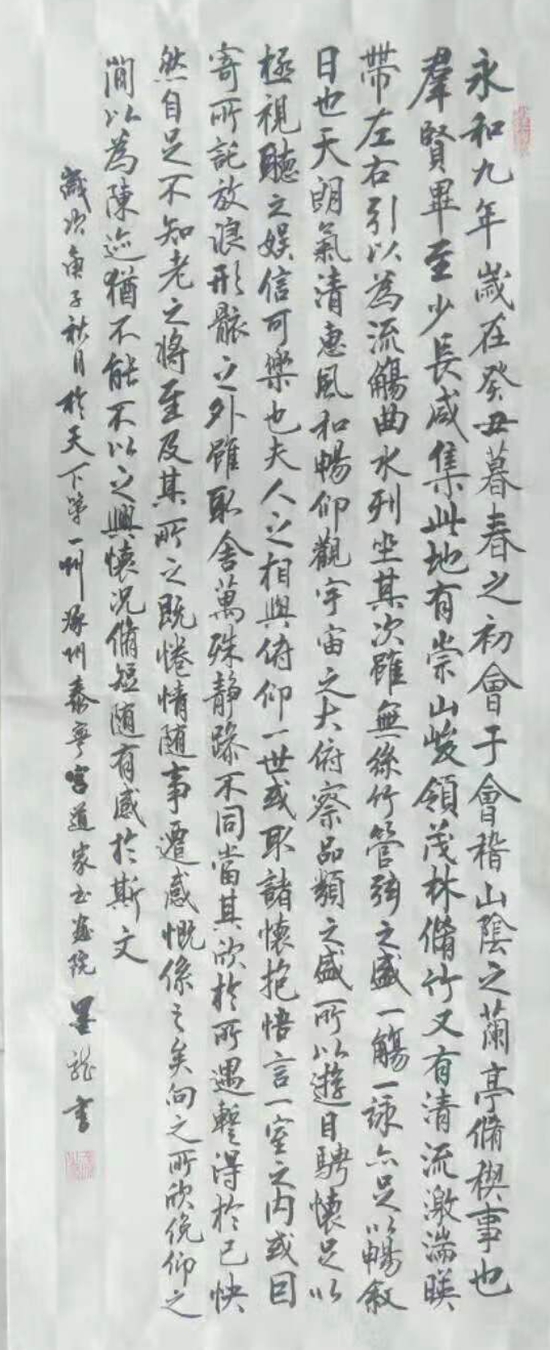 永和九年歲在癸丑暮春之初會于會稽山陰之蘭亭脩稧事也
羣賢畢至少長咸集此地有崇山峻領茂林脩竹又有清流激湍暎
帶左右引以為流觴曲水列坐其次雖無絲竹管弦之盛一觴一詠亦足以暢敘
日也天朗氣清惠風和暢仰觀宇宙之大俯察品類之盛所以遊目騁懷足以
極視聽之娛信可樂也夫人之相與俯仰一世或取諸懷抱悟言一室之内或因
寄所託放浪形骸之外雖取舍萬殊静躁不同當其欣於所遇蹔得於己快
然自足不知老之將至及其所之既惓情随事遷感慨係之矣向之所欣俛仰之
閒以為陳迹猶不能不以之興懷況脩短随有感於斯文
歲次庚子秋月於天下第一州涿州泰寧宮道家書画院 墨龍書